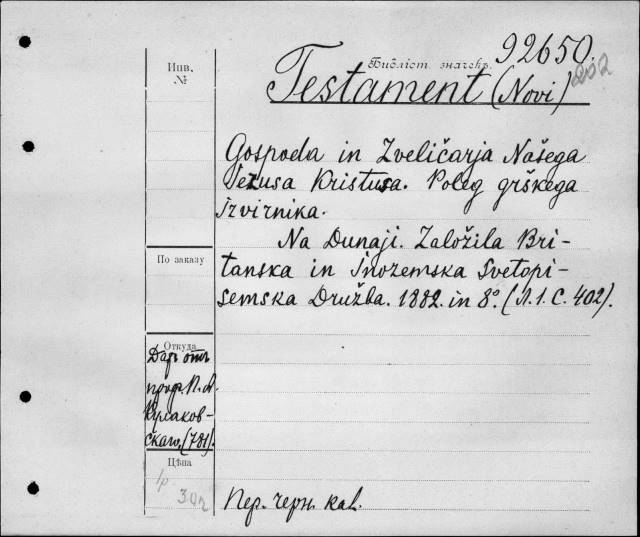 92650.
Библіот. значекъ.
202
Testament (Novi)
Инв.
№
Gospoda in Zveličarja Našega
Jezusa Kristusa. Poleg grškega
Izvirnika.
Na Dunaji. Založila Bri-
tanska in Inozemska Svetopi-
semska Družba. 1882. in 8º. (Л. 1. С. 402).
По заказу
Откуда
Даръ отъ
проф. П. А.
Кулаков-
скаго. (781).
Цѣна
1р
30к
Пер. черн. кал.